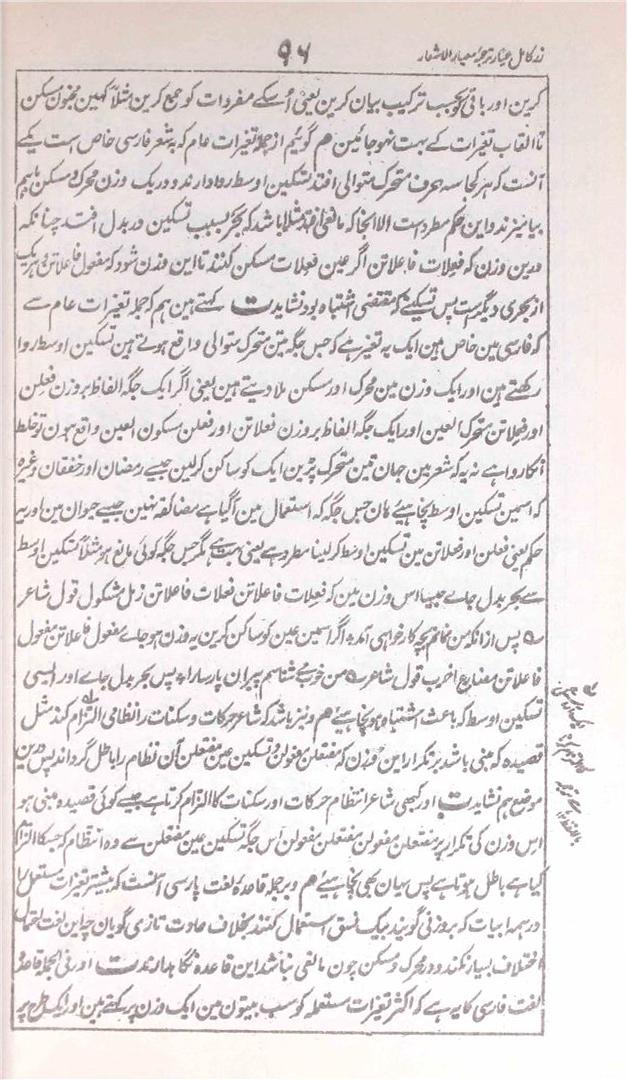 زر کامل عیار ترجمۂ معیار الاشعار
۹۶
کرین اور باقی کو بحسب ترکیب بیان کرین یعنی اُسکے مفردات کو جمع کرین مثلاً کہین مخبون مسکن
تا القاب تغیرات کے بہت نہو جائین هم گوئیم از جملہ تغیرات عام کہ بشعر فارسی خاص است یکے
آنست کہ ہر کجا سہ حرف متحرک متوالی افتد تسکین اوسط روا دارند و در یک وزن محرک و مسکن باہم
بیامیزند و این حکم مطرد است الا آنجا کہ مانعی افتد مثلا باشد کہ بحر بسبب تسکین در بدل افتد چنانکہ
درین وزن کہ فعلات فاعلاتن اگر عین فعلات مسکن کنند تا این وزن شود کہ مفعول فاعلاتن و ہر یک
از بحری دیگرست پس تسکینے کہ مقتضی اشتباہ بود نشاید ت کہتے ہین ہم کہ جملہ تغیرات عام سے
کہ فارسی مین خاص ہین ایک یہ تغیر ہے کہ جس جگہ تین متحرک متوالی واقع ہوتے ہین تسکین اوسط روا
رکھتے ہین اور ایک وزن مین محرک اور مسکن ملا دیتے ہین یعنی اگر ایک جگہ الفاظ بر وزن فعلن
اور فعلاتن متحرک العین اور ایک جگہ الفاظ بر وزن فعلاتن اور فعلن مسکون العین واقع ہون تو خلط
انکا روا ہے نہ یہ کہ شعر مین جہان تین متحرک پڑین ایک کو ساکن کرلین جیسے رمضان اور خفقان وغیرہ
کہ اسمین تسکین اوسط نچاہیے ہان جس جگہ کہ استعمال مین آگیا ہے مضائقہ نہین جیسے حیوان مین اور یہ
حکم یعنی فعلن اور فعلاتن مین تسکین اوسط کر لینا مطرد ہے یعنی بہت ہے مگر جس جگہ کوئی مانع ہو مثلاً تسکین اوسط
سے بحر بدل جاے جیسا اس وزن مین کہ فعلات فاعلاتن فعلات فاعلاتن رمل مشکول قول شاعر
پس از انکہ من نمانم بچہ کار خواہی آمد٭ اگر اسمین عین کو ساکن کرین یہ وزن ہو جاے مفعول فاعلاتن مفعول
فاعلاتن مضارع اخرب قول شاعر من خوب مے شناسم پیران پارسا را٭ پس بحر بدل جاے اور ایسی
تسکین اوسط کہ باعث اشتباہ ہو نچاہیے هم و نیز باشد کہ شاعر حرکات و سکنات را نظامی التزام کند مثل
قصیدہ کہ مبنی باشد بر تکرار این وزن کہ مفتعلن مفعولن و تسکین عین مفتعلن آن نظام را باطل گرداند پس درین
موضع ہم نشاید ت اور کبھی شاعر انتظام حرکات اور سکنات کا التزام کرتا ہے جیسے کوئی قصیدہ مبنی ہو
اس وزن کی تکرار پر مفتعلن مفعولن مفتعلن مفعولن اُس جگہ تسکین عین مفتعلن سے وہ انتظام کہ جسکا التزام
کیا ہے باطل ہوتا ہے پس یہان بھی نچاہیے هم و بر جملہ قاعدۂ لغت پارسی آنست کہ بیشتر تغیرات مستعمل را
در ہمہ ابیات کہ بر وزنی گویند بیک نسق استعمال کنند بخلاف عادت تازی گویان چہ این لغت احتمال
اختلاف بسیار نکند و در محرک و مسکن چون مانعی نباشد این قاعدہ نگاہ ندارند ت اور فی الجملہ قاعدہ
لغت فارسی کا یہ ہے کہ اکثر تغیرات مستعملہ کو سب بیتون مین ایک وزن پر رکھتے ہین اور ایک طرح پر